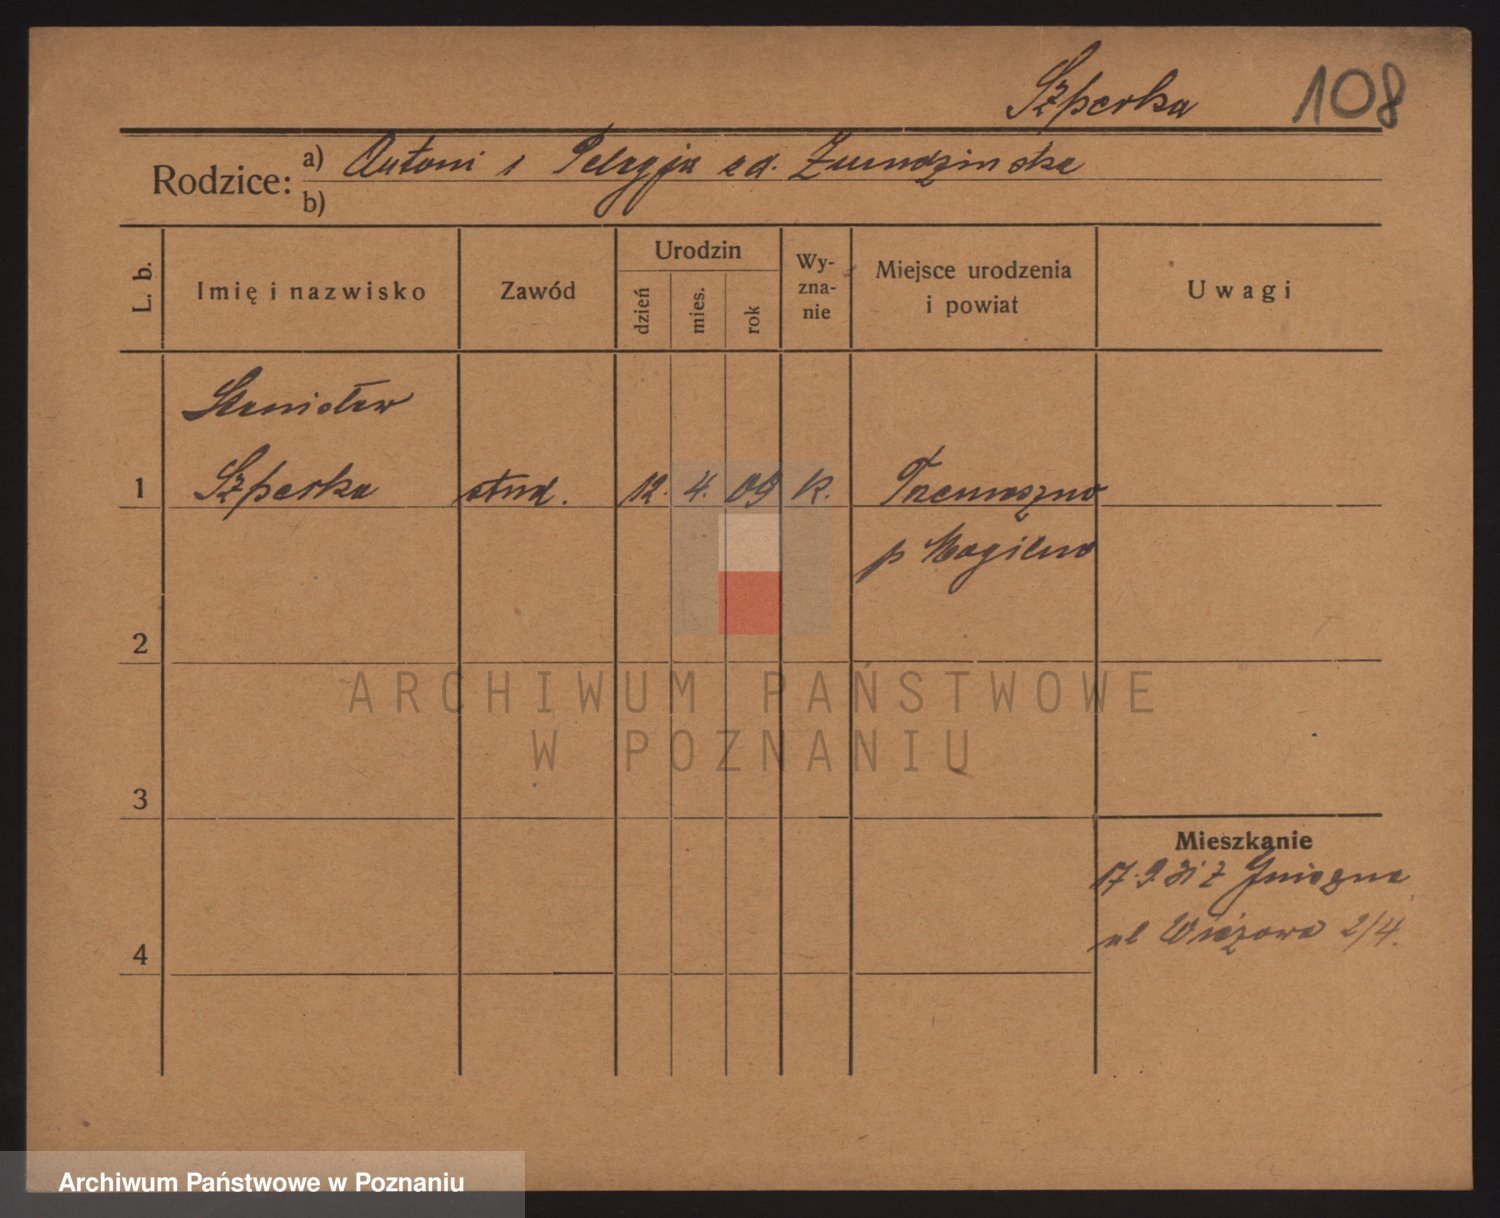 Szperka 108
Rodzice: a) Antoni i Pelagja zd. Żumdzinska
b)
L. b. Imię i nazwisko Zawód Urodzin dzień mies. rok Wyznanie Miejsce urodzenia i powiat Uwagi
Stanisław
1 Szperka stud. 12. 4. 09 k. Trzemeszno
p Mogilno
2
ARCHIWUM PAŃSTWOWE
W POZNANIU
3
Mieszkanie
17.9.31 z Gniezna
4 ul Wiązowa 2/4.
Archiwum Państwowe w Poznaniu